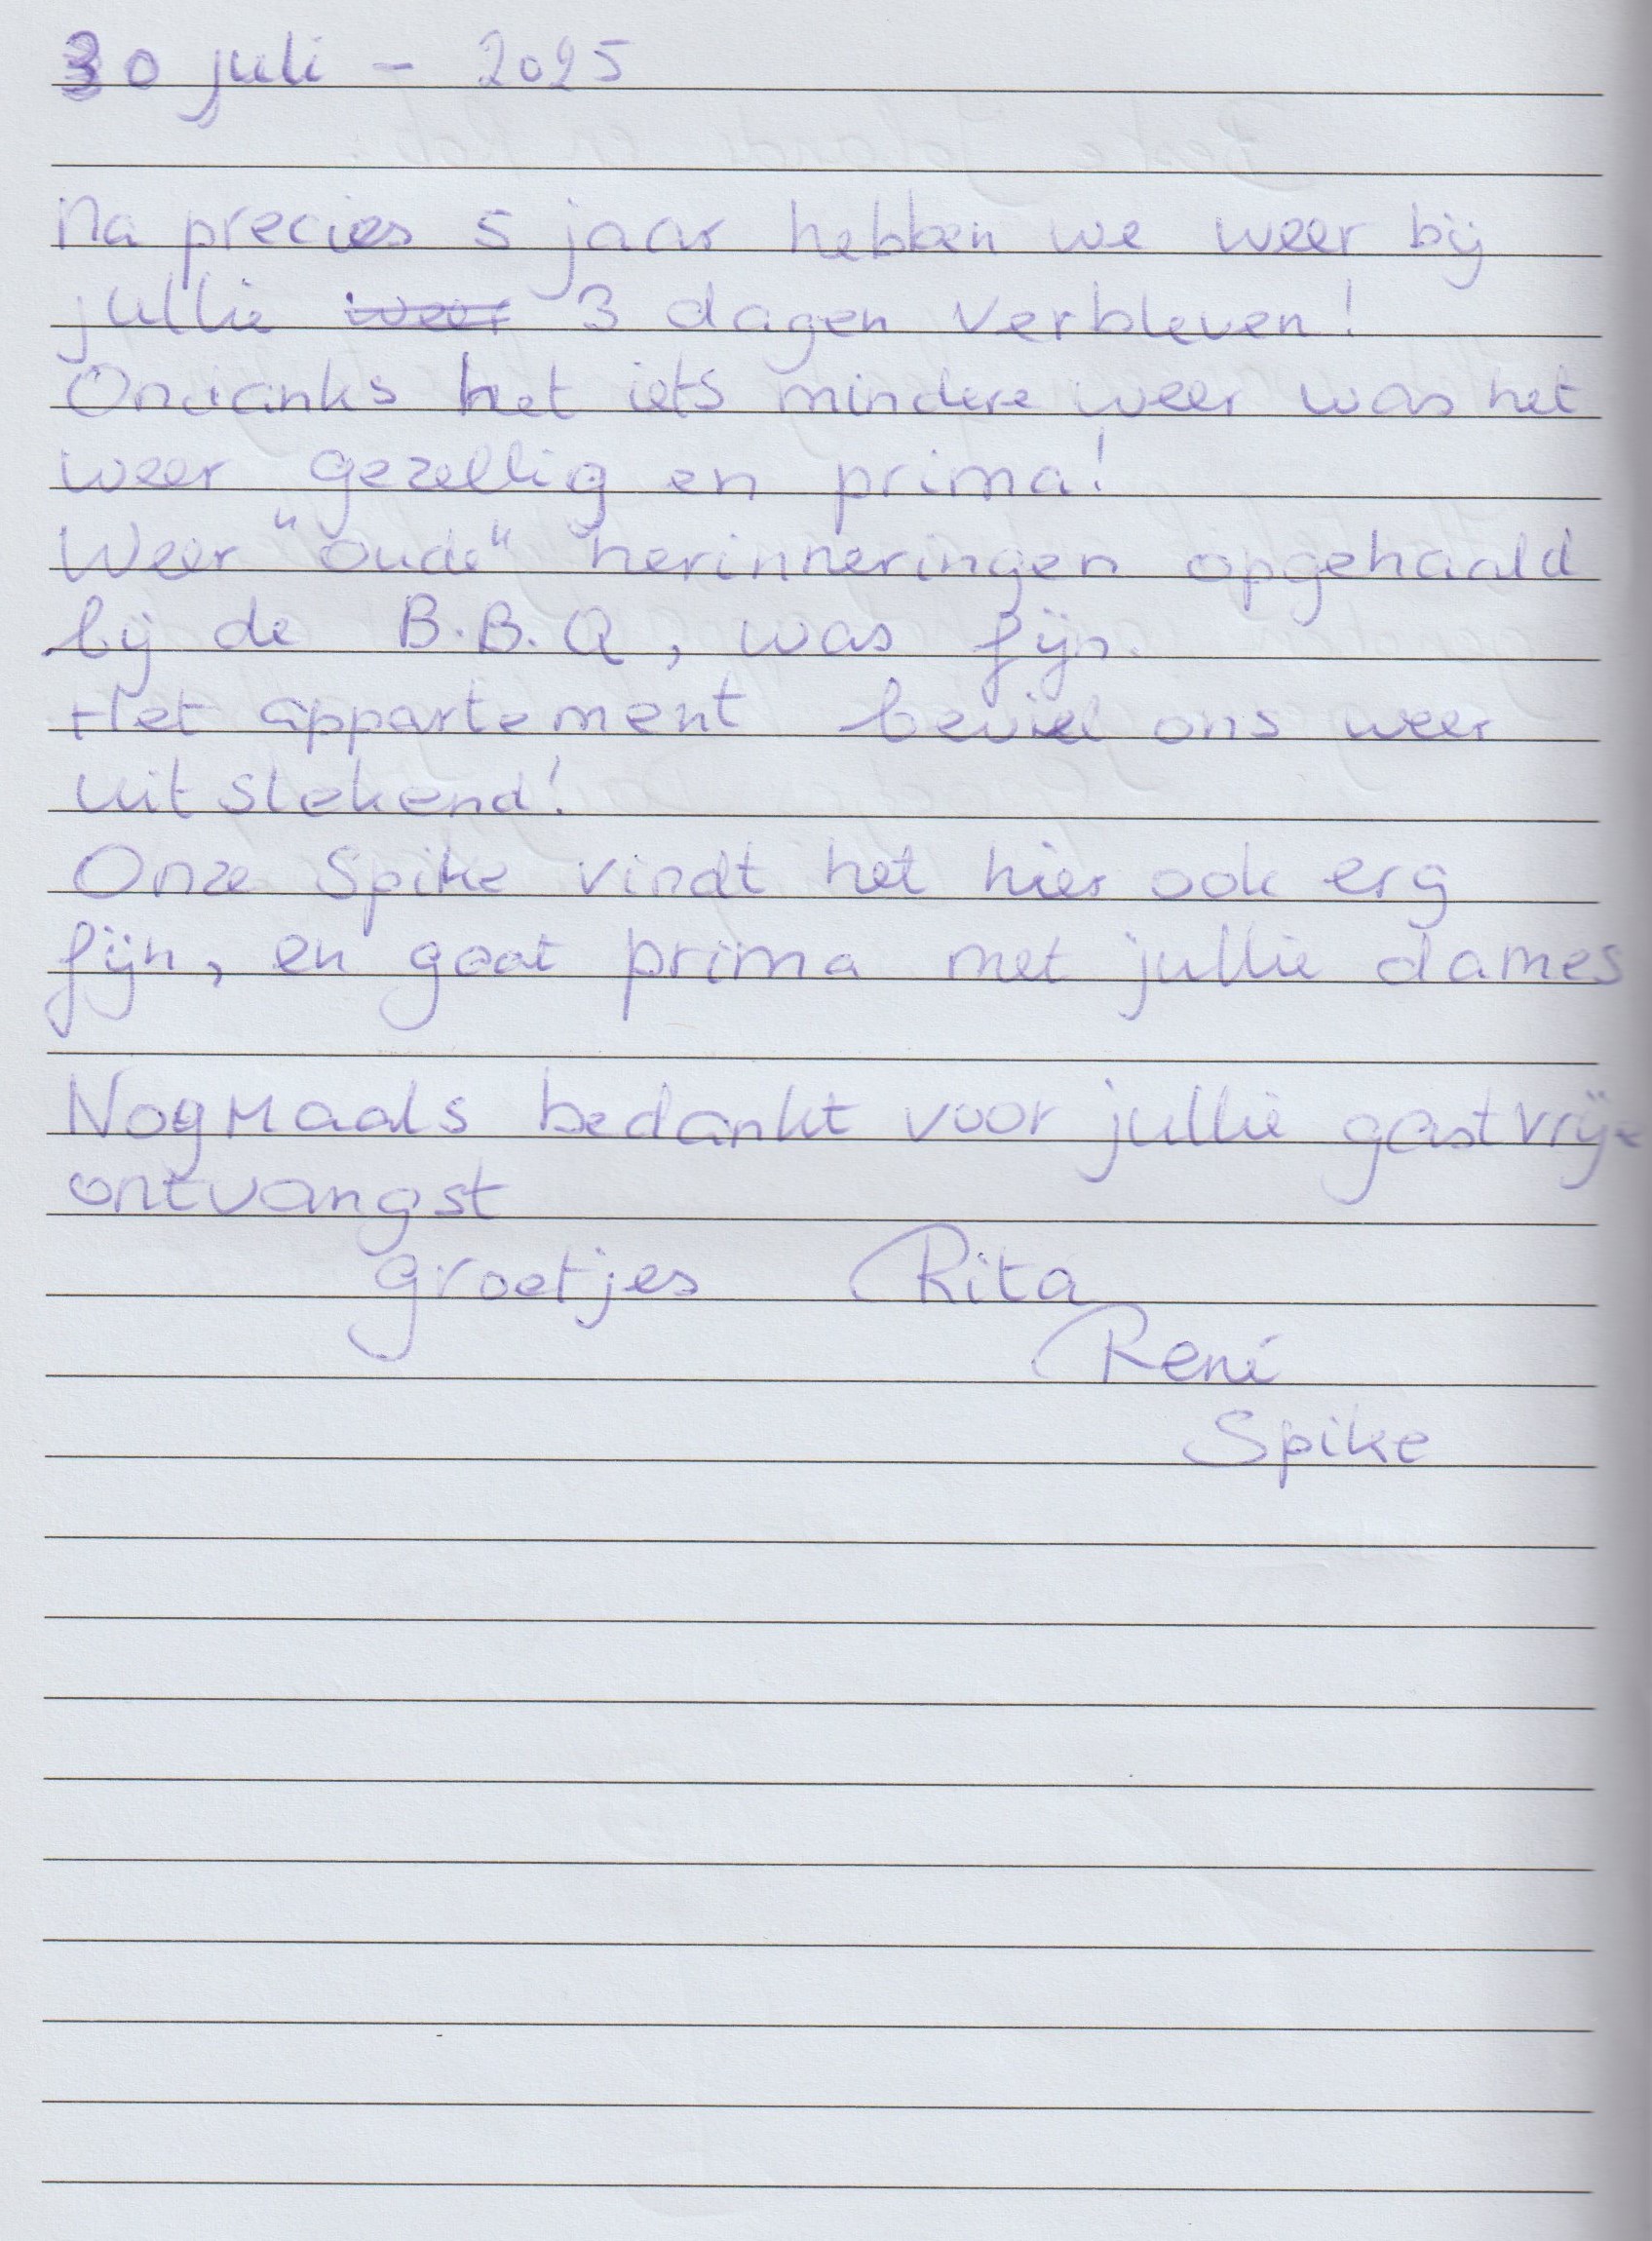 30 juli - 2025
Na precies 5 jaar hebben we weer bij
jullie ~~weer~~ 3 dagen verbleven!
Ondanks het iets mindere weer was het
weer gezellig en prima!
Weer "oude" herinneringen opgehaald
bij de B.B.Q, was fijn.
Het appartement beviel ons weer
uitstekend!
Onze Spike vindt het hier ook erg
fijn, en gaat prima met jullie dames
Nogmaals bedankt voor jullie gastvrije
ontvangst
groetjes Rita
René
Spike